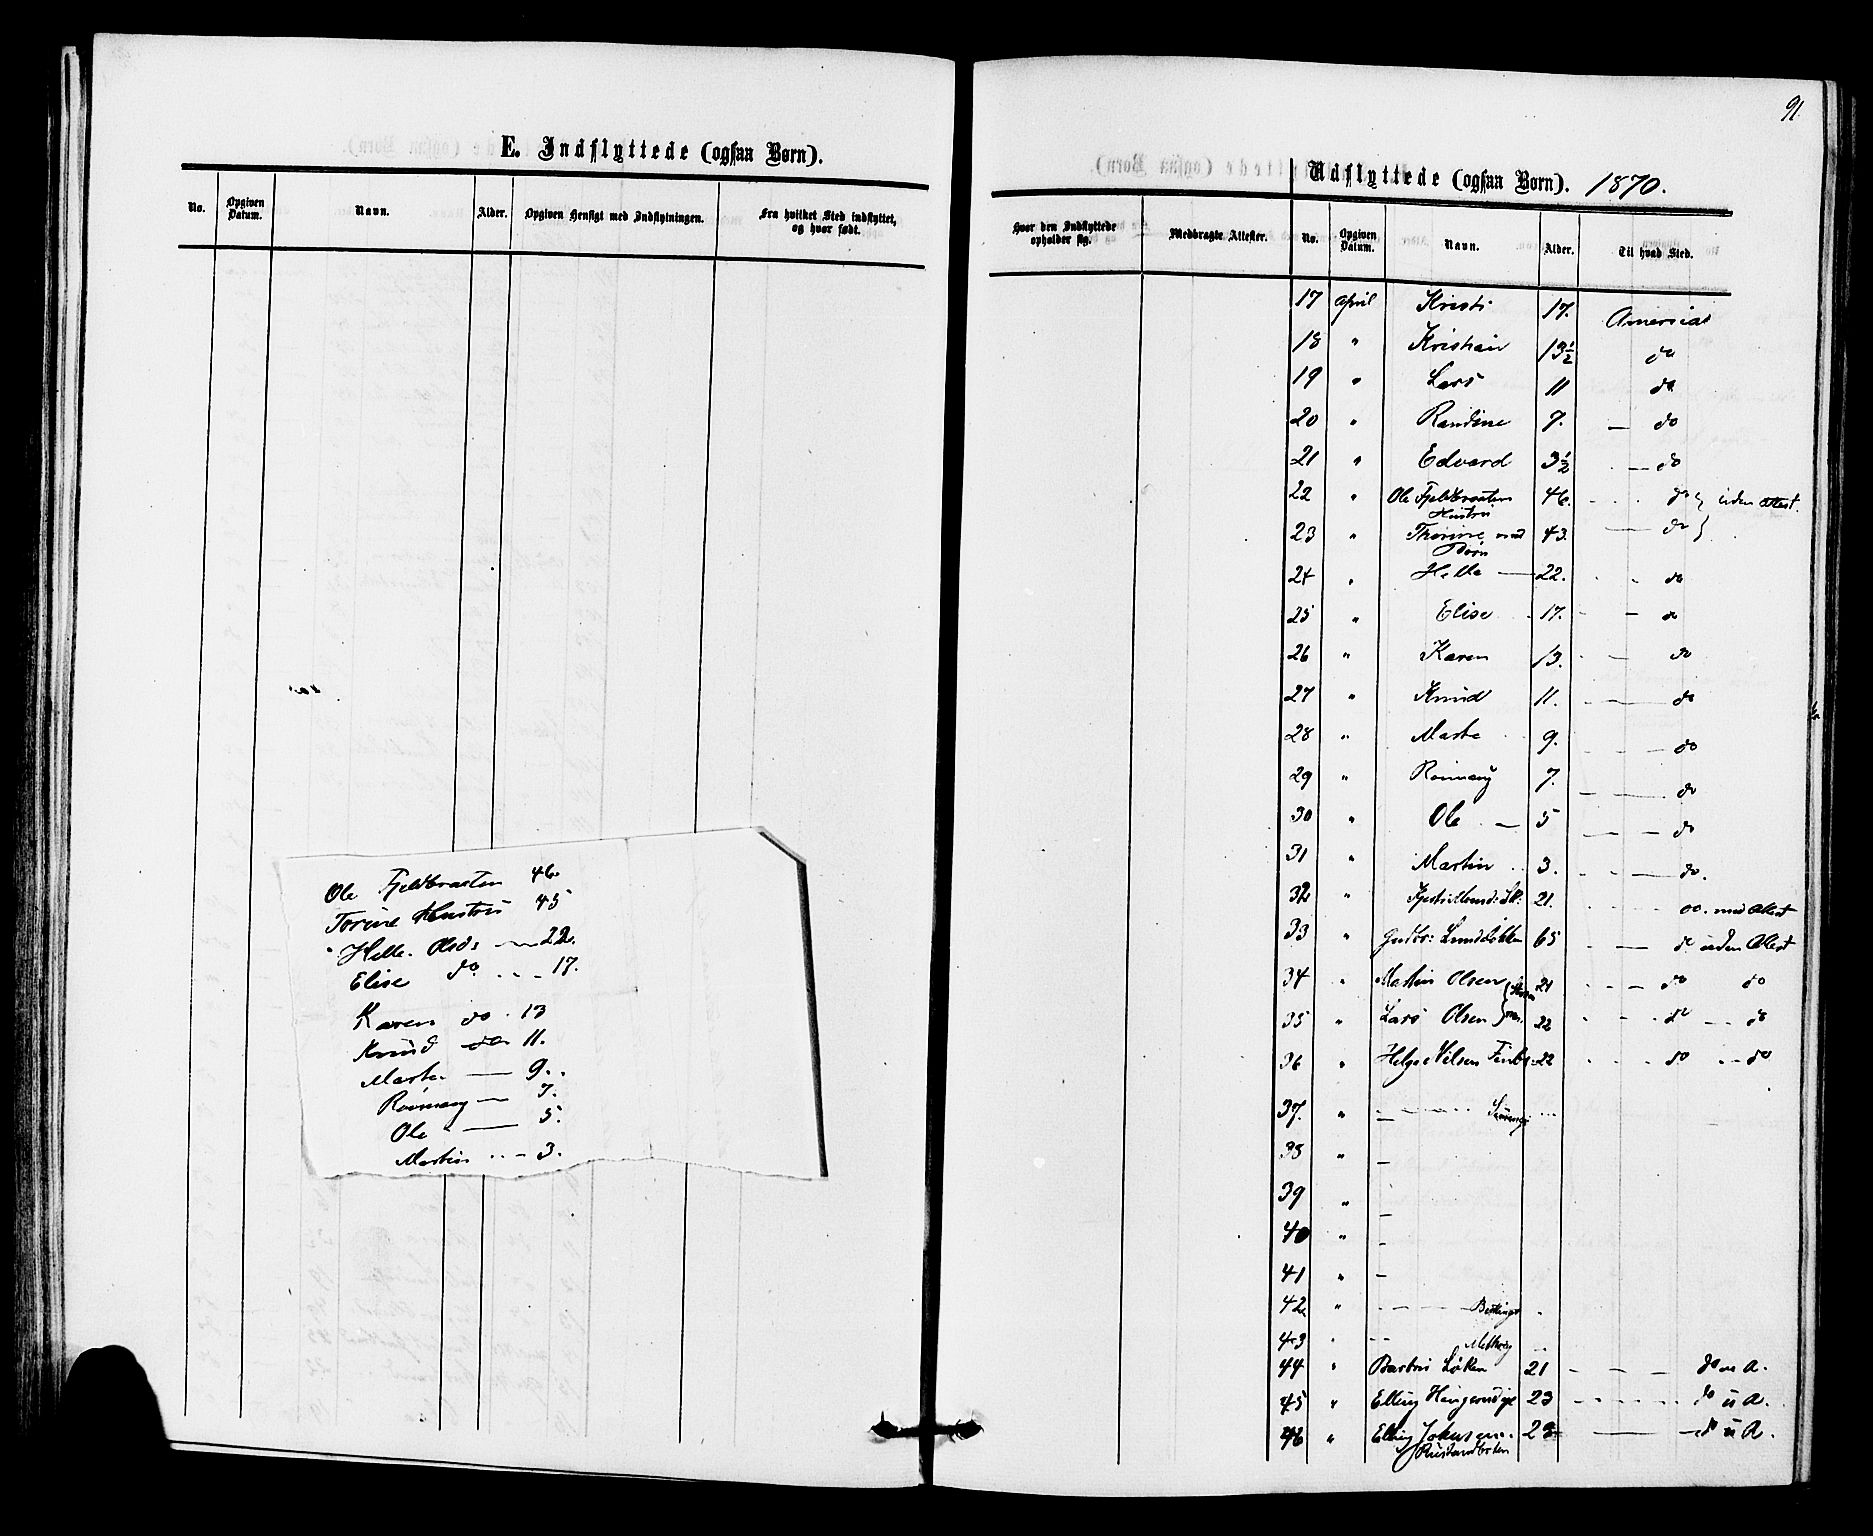 E. Indflyttede (ogsaa Børn).
No. Opgiven Datum. Navn. Alder. Opgiven Hensigt med Indflytningen. Fra hvilket Sted indflyttet, og hvor født.
Ole Fjeldbraaten 46
Torine Hustru 45
Helle Olsd: — 22.
Elise do. — 17.
Karen do . 13
Knud do 11.
Marte — 9.
Rønnaug — 7.
Ole — 5.
Martin — 3.
91
Udflyttede (ogsaa Børn). 1870.
Hvor den Indflyttede opholder sig. Medbragte Attester. No. Opgiven Datum. Navn. Alder. Til hvad Sted.
17 April Kristi 17. America
18 " Kristian 13½ do
19 " Lars 11 do
20 " Randine 7. — do
21 " Edvard 3½ — do
22 " Ole Fjeldbraaten 46. do } uden Attest.
Hustru
23 " Thorine med 43. — do }
Børn
24 " Helle — 22. do
25 " Elise 17. — do
26 " Karen 13. — do
27 " Knud 11. — do
28 " Marte 9. — do
29 " Rønnaug 7. — do
30 " Ole — 5 — do
31 " Martin 3. — do.
32 " 21. do. med Attest
33 " Gudbr: Lundeløkken 65 — do uden Attest
34 " Martin Olsen 21 — do do
35 " Lars Olsen 22 do — do
36 " Helge Nilsen 22 do — do
37. " —
38 " —
39 " —
40 " —
41 " —
42 " —
43 " —
44 " Løken 21 — do m A.
45 " Elling 23 do u A.
46 " Elling Johnsen — do u A.